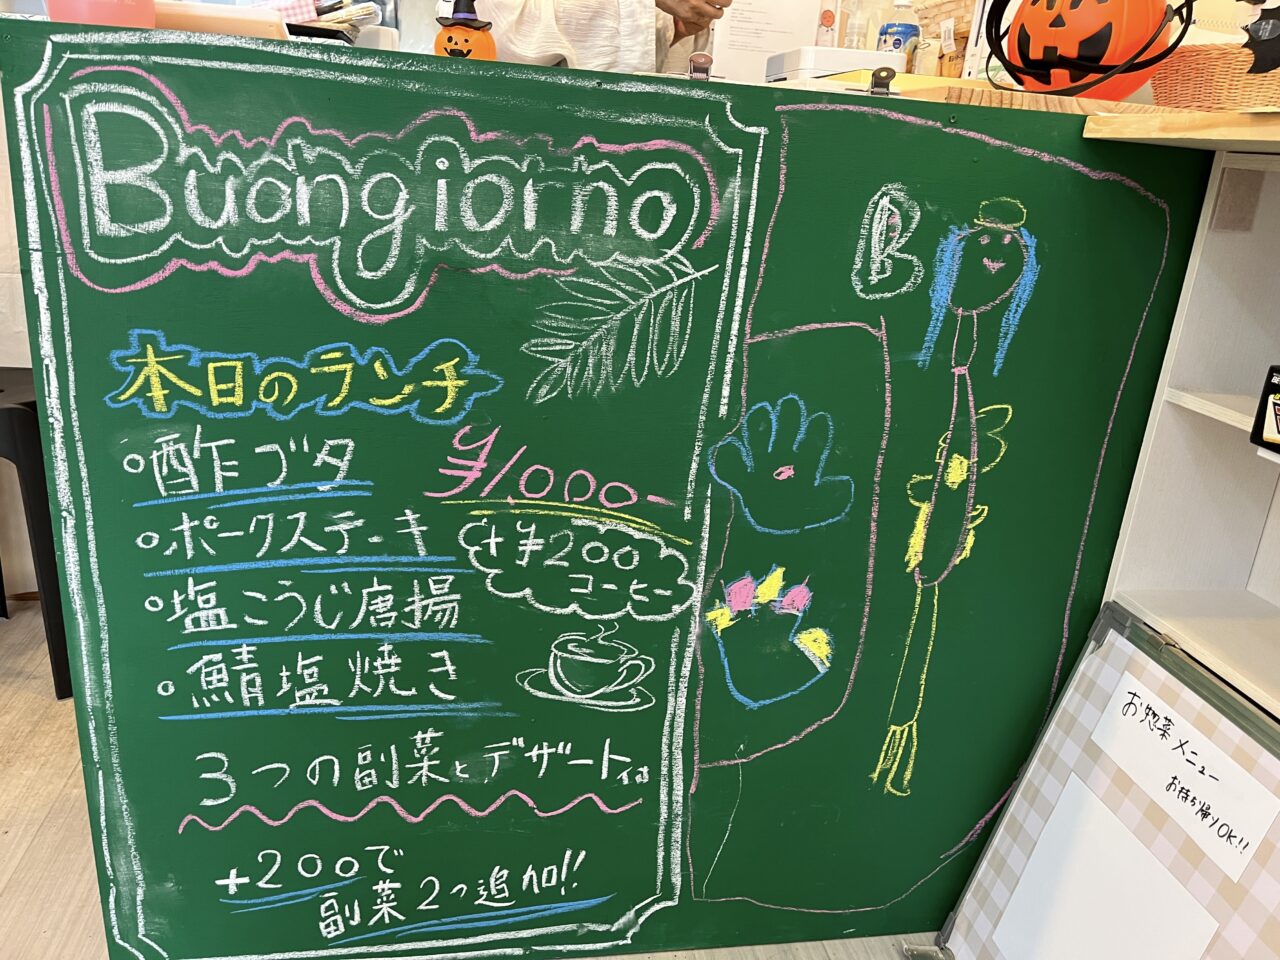 Buongiorno
本日のランチ
○酢ブタ
○ポークステーキ
○塩こうじ唐揚
○鯖塩焼き
¥1,000-
+¥200
コーヒー
3つの副菜とデザート付
+200で
副菜2つ追加!!
B
お惣菜メニュー
お持ち帰りOK!!